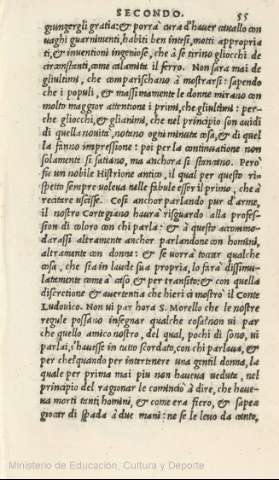 SECONDO. 55
giungergli gratia: & porrà cura d'hauer cauallo con
uaghi guarnimenti, habiti ben intesi, motti appropria
ti, & inuentioni ingeniose, che à se tirino gliocchi de
circonstanti, come calamita il ferro. Non sarà mai de
gliultimi, che comparischano à mostrarsi: sapendo
che i populi, & massimamente le donne mirano con
molto maggior attentione i primi, che gliultimi: per-
che gliocchi, & glianimi, che nel principio son auidi
di quella nouità, notano ogni minuta cosa, & di quel
la fanno impressione: poi per la continuatione non
solamente si satiano, ma anchora si stancano. Però
fu un nobile Histrione antico, il qual per questo ri-
spetto sempre uoleua nelle fabule esser il primo, che à
recitare uscisse. Cosi anchor parlando pur d'arme,
il nostro Cortegiano haurà risguardo alla profes-
sion di coloro con chi parla: & à questo accommo-
darassi altramente anchor parlandone con homini,
altramente con donne: & se uorrà toccar qualche
cosa, che sia in laude sua propria, lo farà dissimu-
latamente come à caso & per transito: & con quella
discretione & auertentia che hieri ci mostrò il Conte
Ludouico. Non ui par hora S. Morello che le nostre
regule possano insegnar qualche cosa? non ui par
che quello amico nostro, del qual, pochi dì sono, ui
parlai, s'hauesse in tutto scordato, con chi parlaua, &
per che? quando per intertenere una gentil donna, la
quale per prima mai piu non haueua ueduta, nel
principio del ragionar le cominciò à dire, che haue-
ua morti tanti homini, & come era fiero, & sapea
giocar di spada à due mani: ne se le leuo da canto,
Ministerio de Educación, Cultura y Deporte